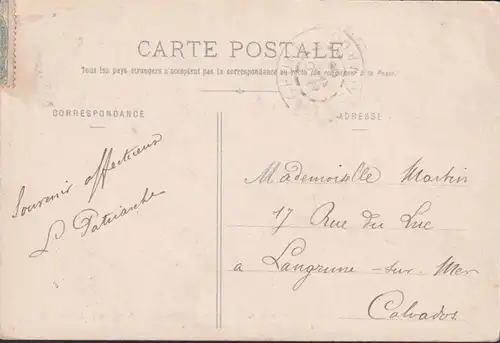 CARTE POSTALE
Tous les pays étrangers n'acceptent pas la correspondance au recto (Se renseigner à la Poste)
CORRESPONDANCE
ADRESSE
Souvenir affectueux
L Patriarche
Mademoiselle Martin
17 Rue du Luc
a Langrune-sur-Mer
Calvados